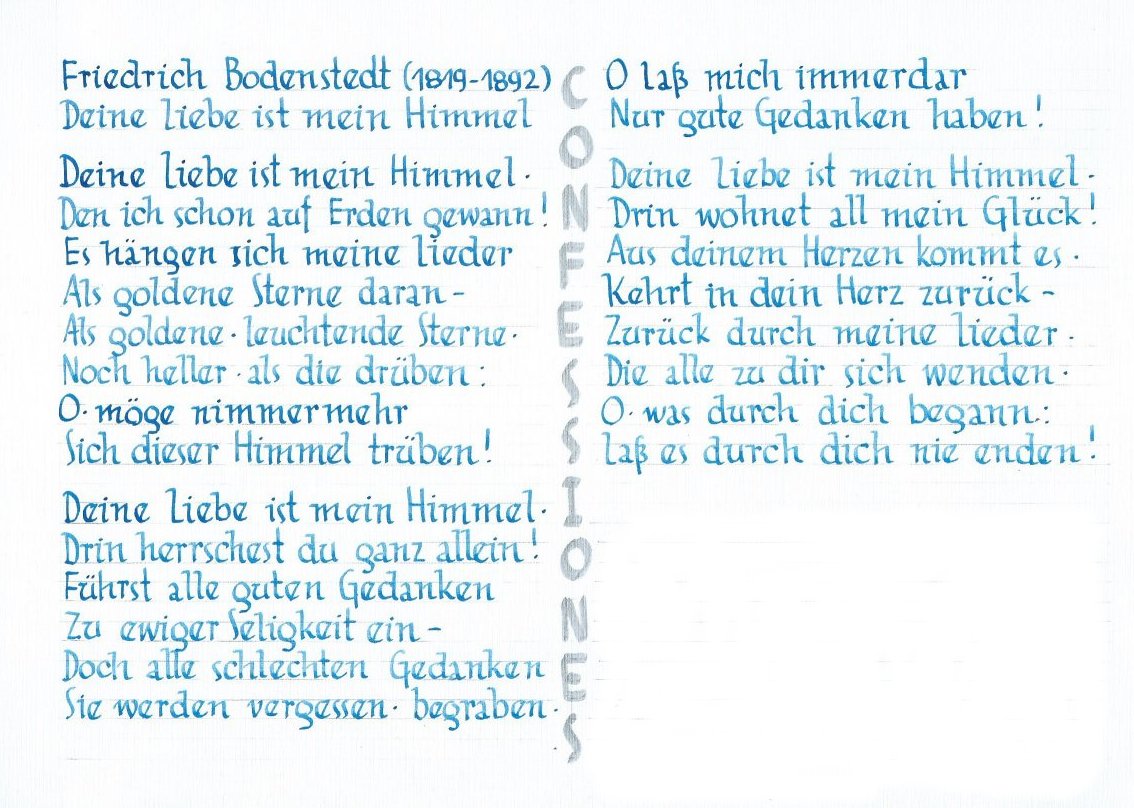 Friedrich Bodenstedt (1819-1892)
Deine Liebe ist mein Himmel
Deine Liebe ist mein Himmel·
Den ich schon auf Erden gewann!
Es hängen sich meine Lieder
Als goldene Sterne daran-
Als goldene·leuchtende Sterne·
Noch heller·als die drüben:
O·möge nimmermehr
Sich dieser Himmel trüben!
Deine Liebe ist mein Himmel·
Drin herrschest du ganz allein!
Führst alle guten Gedanken
Zu ewiger Seligkeit ein-
Doch alle schlechten Gedanken
Sie werden vergessen·begraben·
CONFESSIONES
O laß mich immerdar
Nur gute Gedanken haben!
Deine Liebe ist mein Himmel·
Drin wohnet all mein Glück!
Aus deinem Herzen kommt es·
Kehrt in dein Herz zurück-
Zurück durch meine Lieder·
Die alle zu dir sich wenden·
O·was durch dich begann:
Laß es durch dich nie enden!